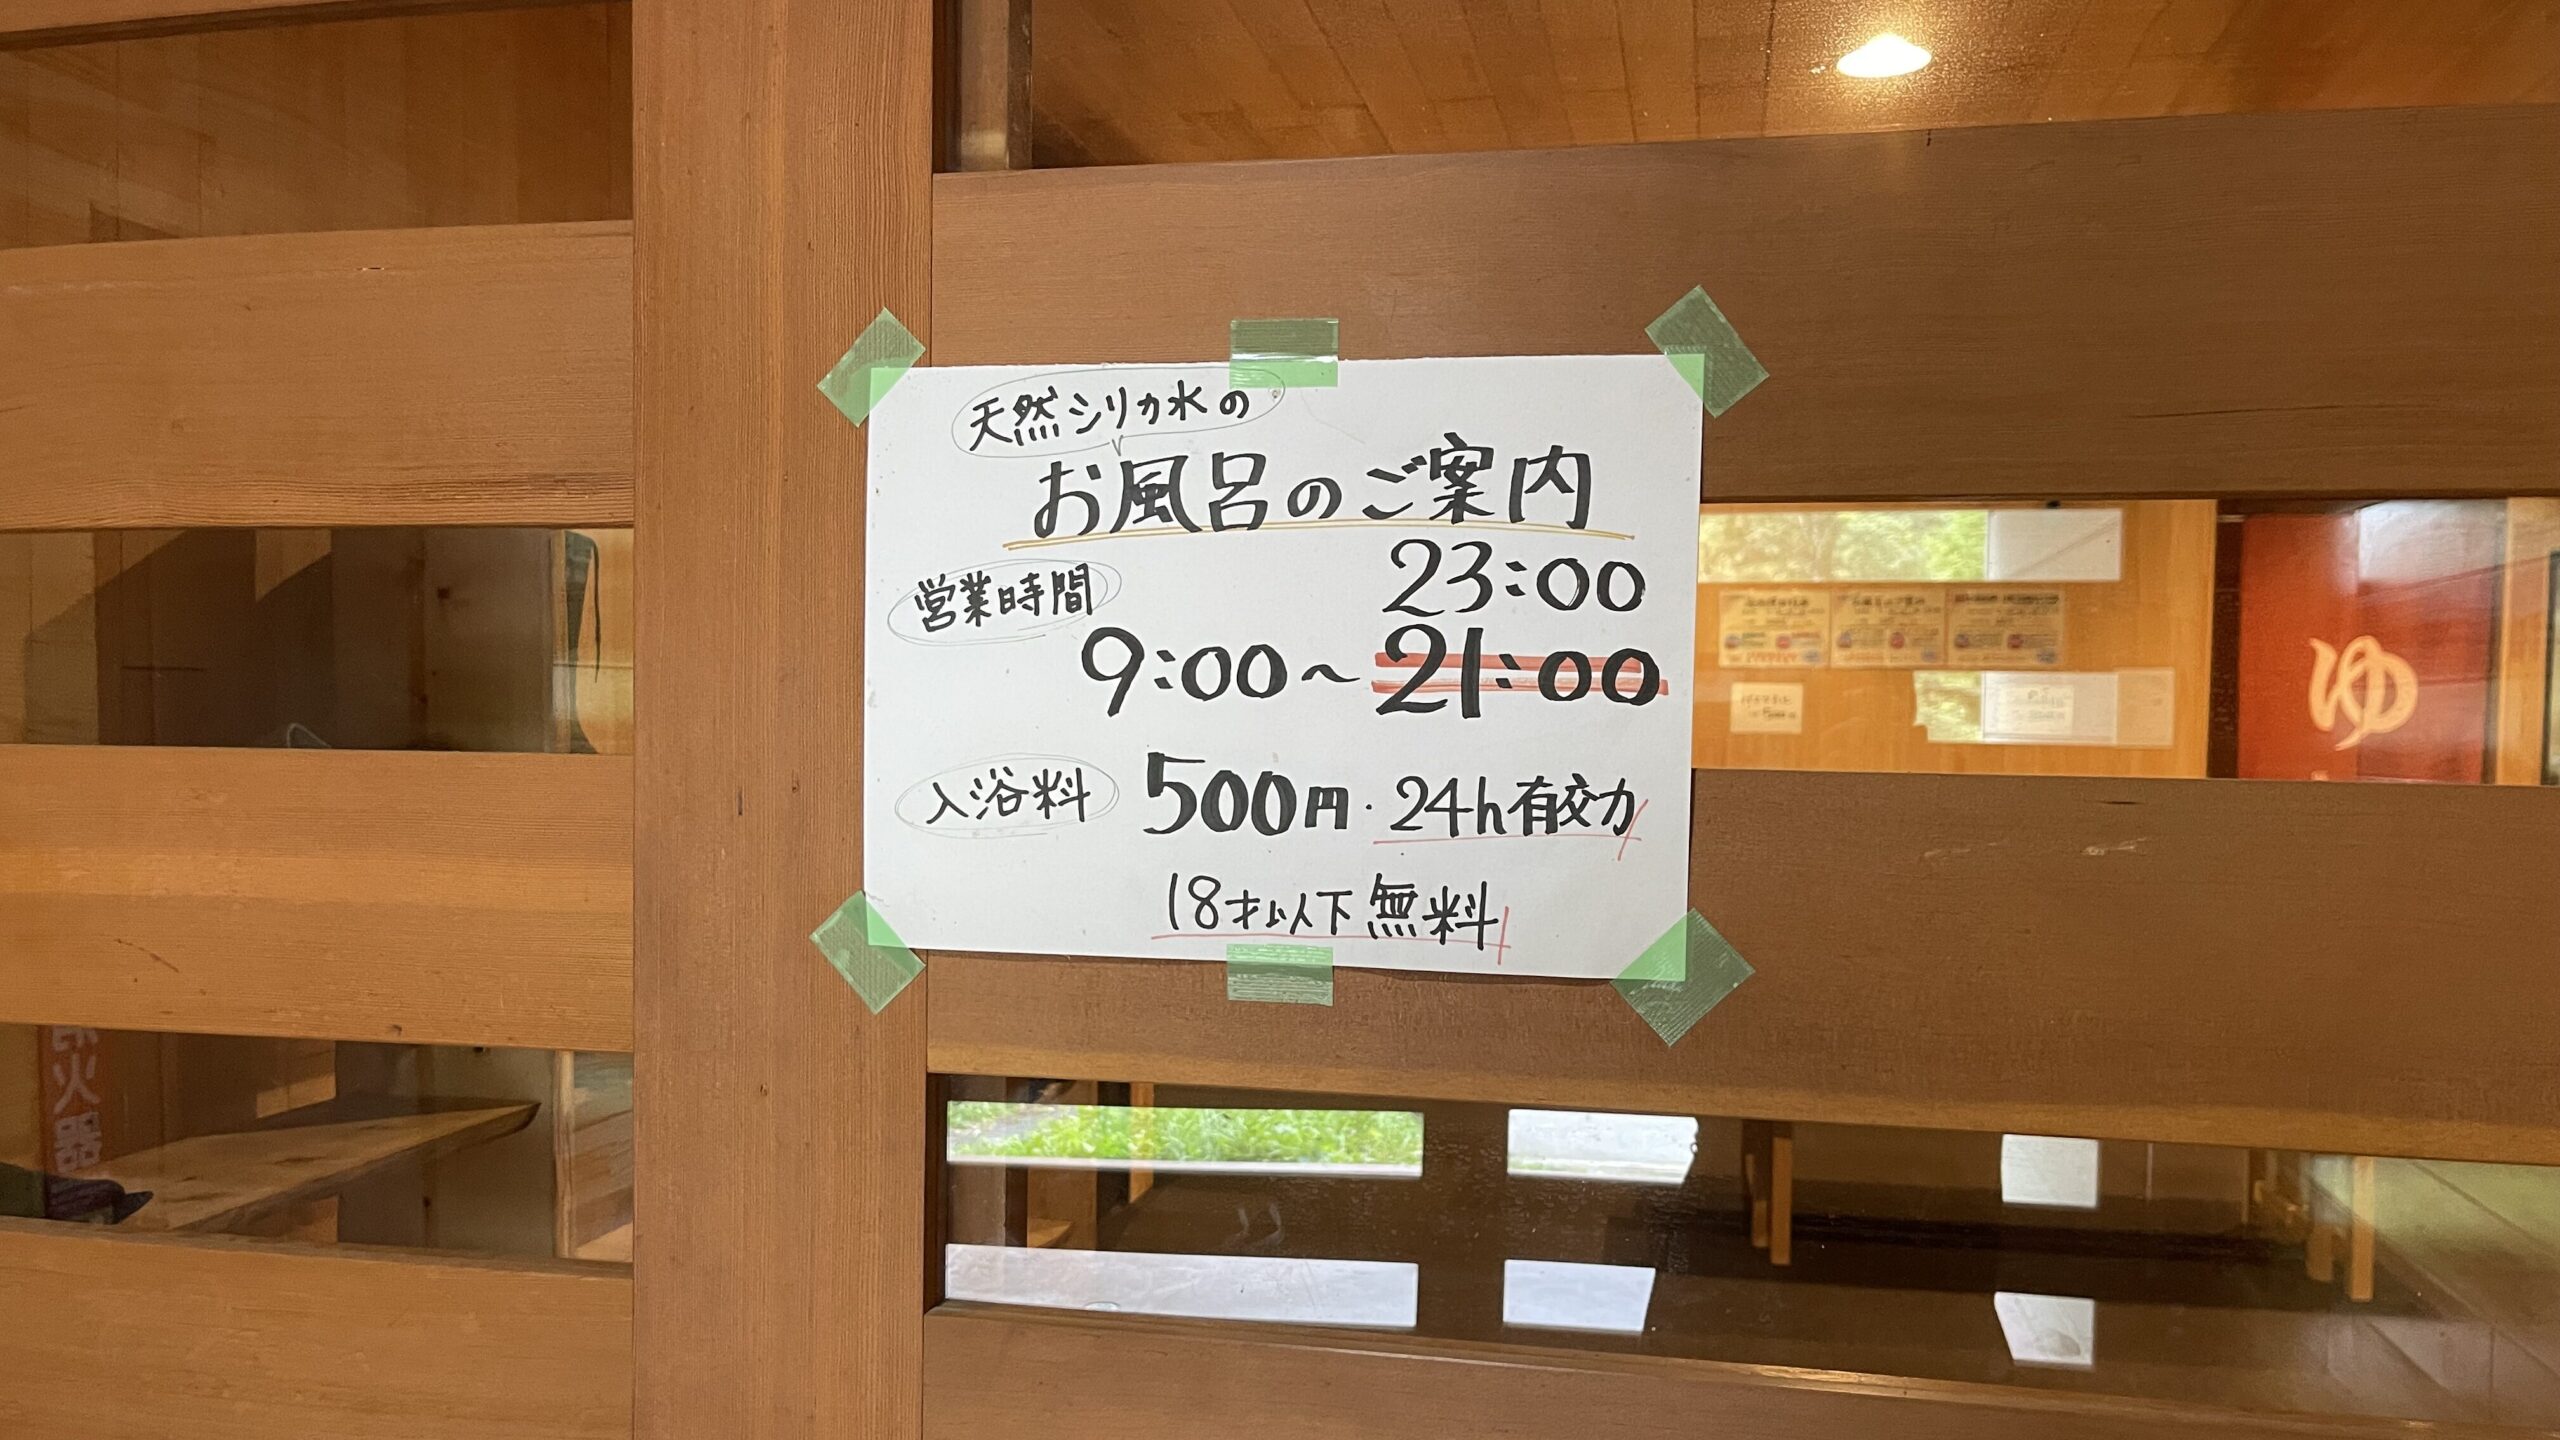 天然シリカ水の
お風呂のご案内
営業時間
23:00
9:00～21:00
入浴料 500円・24h有効
18才以下無料
ゆ
火器